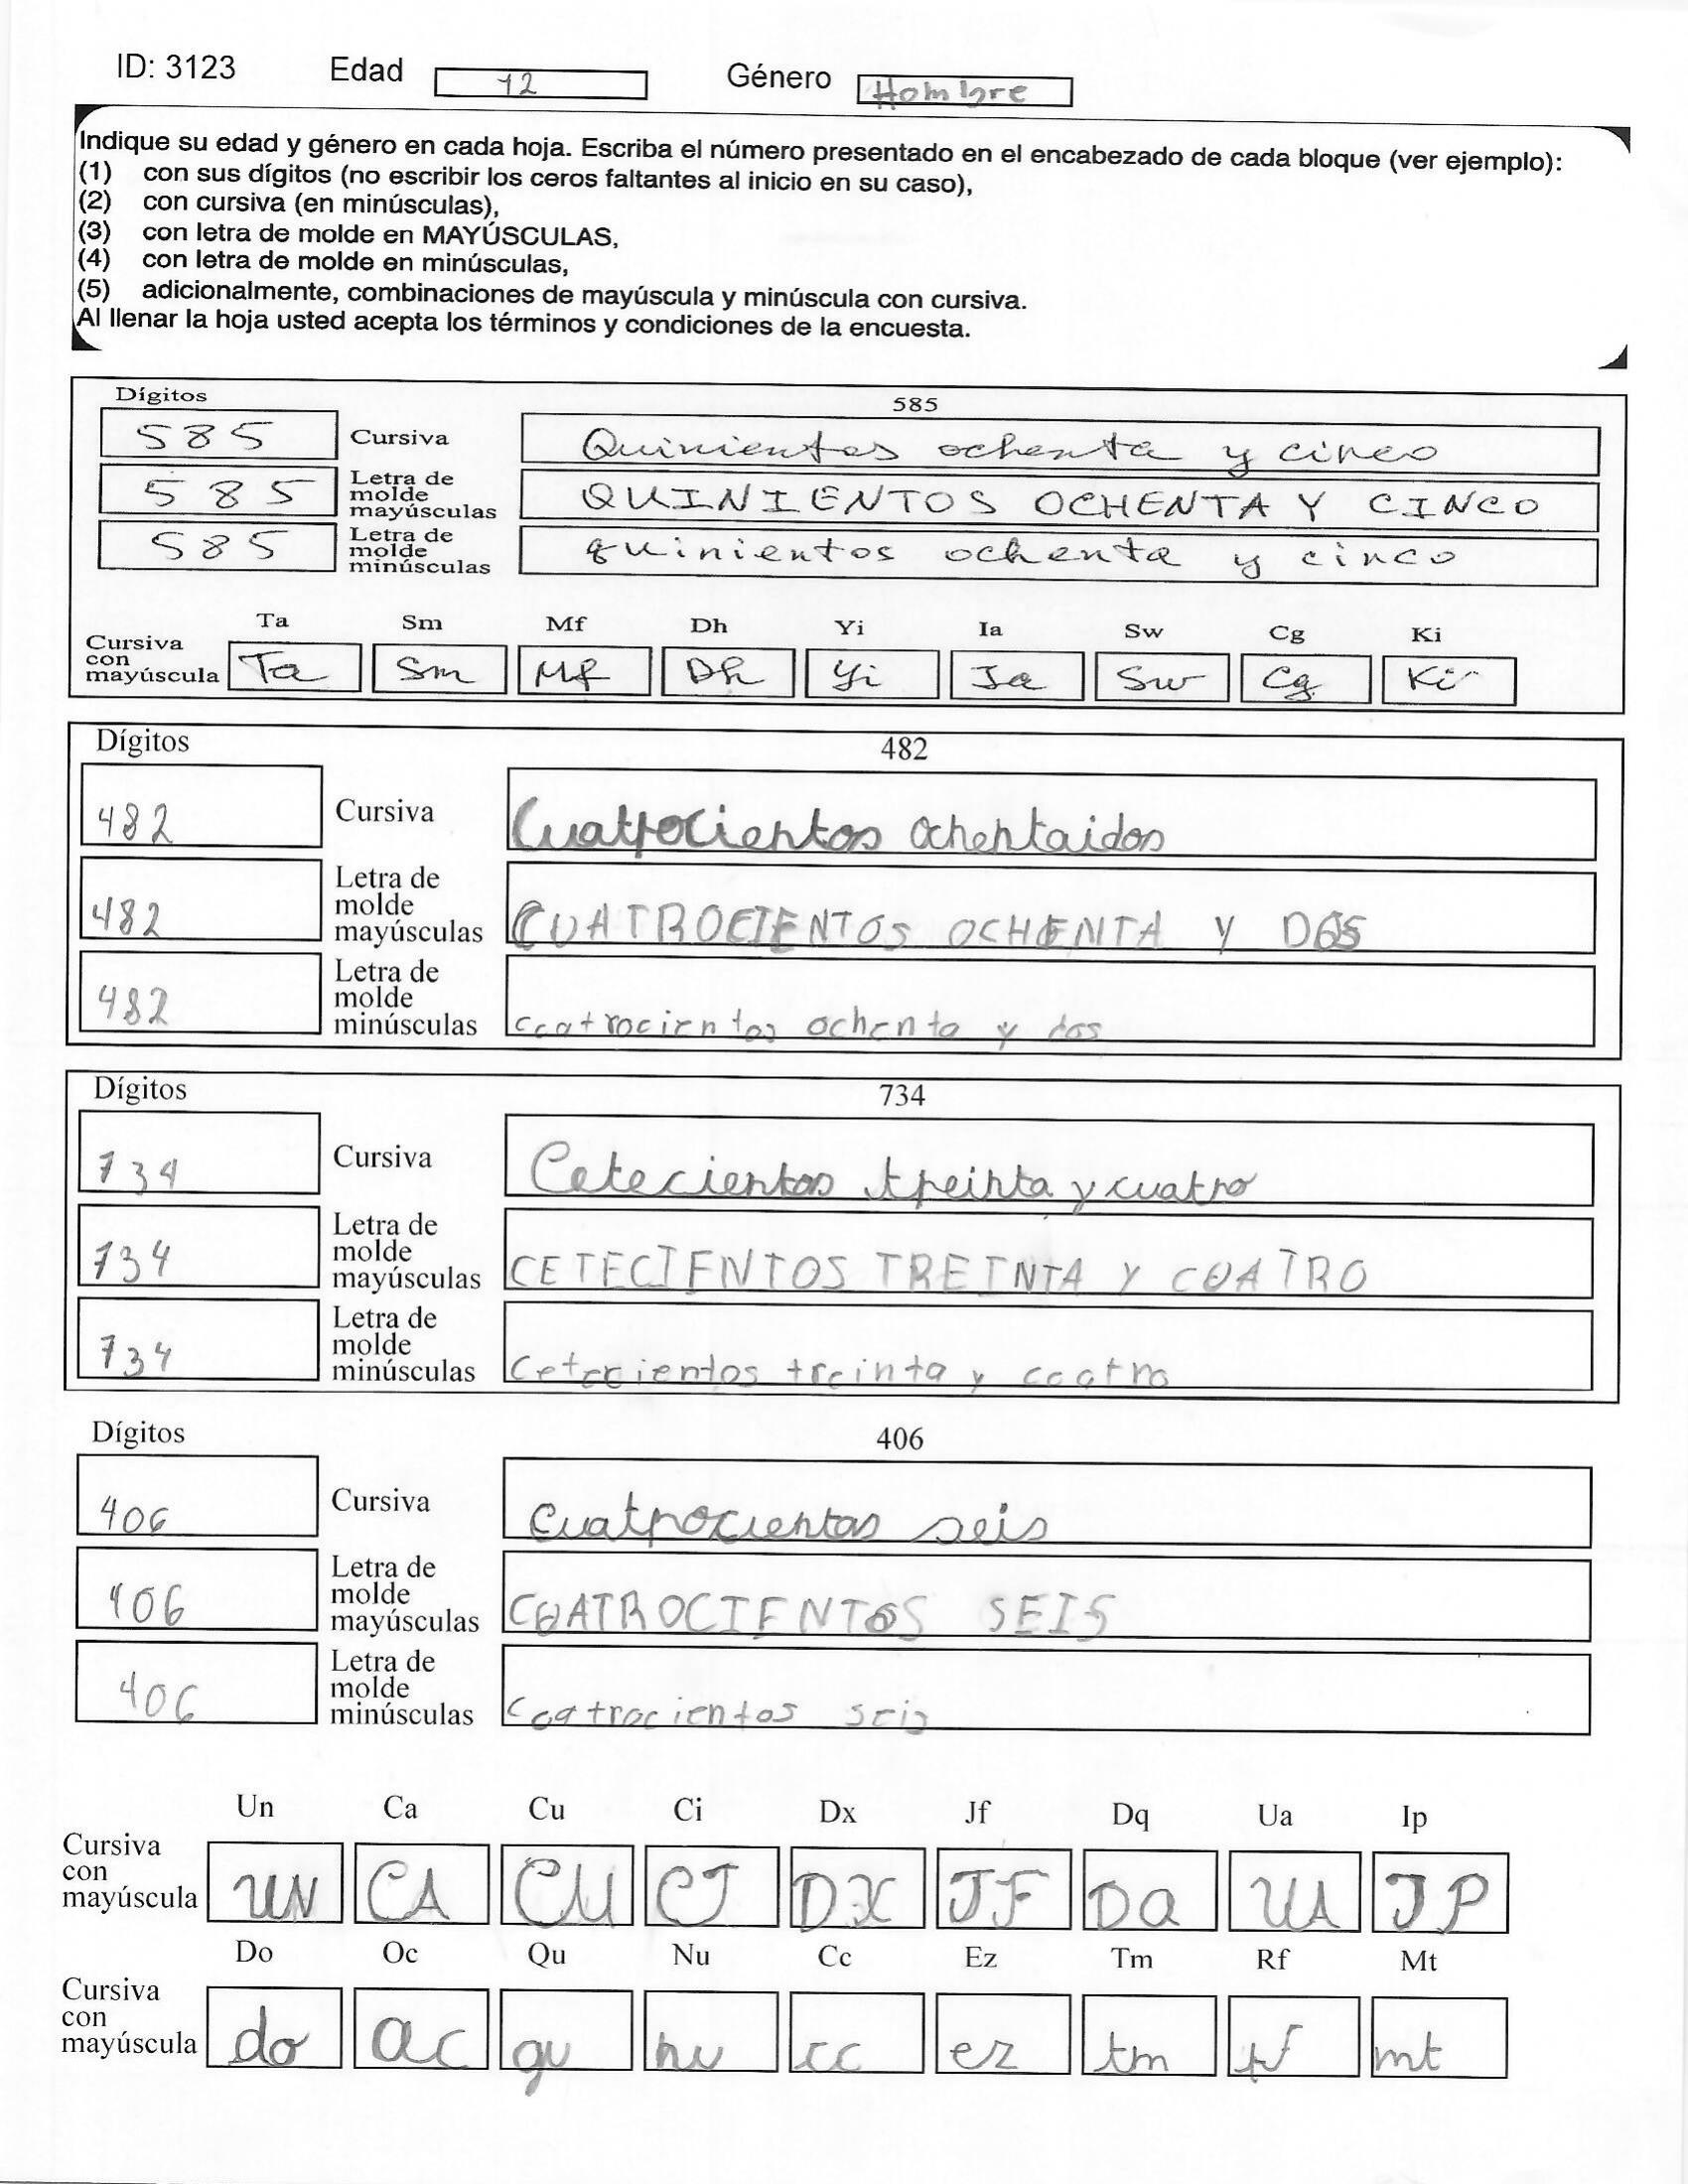 ID: 3123 Edad 12 Género Hombre
Indique su edad y género en cada hoja. Escriba el número presentado en el encabezado de cada bloque (ver ejemplo):
(1) con sus dígitos (no escribir los ceros faltantes al inicio en su caso),
(2) con cursiva (en minúsculas),
(3) con letra de molde en MAYÚSCULAS,
(4) con letra de molde en minúsculas,
(5) adicionalmente, combinaciones de mayúscula y minúscula con cursiva.
Al llenar la hoja usted acepta los términos y condiciones de la encuesta.
Dígitos 585
585 Cursiva Quinientos ochenta y cinco
585 Letra de molde mayúsculas QUINIENTOS OCHENTA Y CINCO
585 Letra de molde minúsculas quinientos ochenta y cinco
Ta Sm Mf Dh Yi Ia Sw Cg Ki
Cursiva con mayúscula Ta Sm Mf Dh Yi Ia Sw Cg Ki
Dígitos 482
482 Cursiva Cuatrocientos ochentaidos
482 Letra de molde mayúsculas CUATROCIENTOS OCHENTA Y DOS
482 Letra de molde minúsculas ccatrocientos ochenta y dos
Dígitos 734
734 Cursiva Cetecientos treinta y cuatro
734 Letra de molde mayúsculas CETECIENTOS TREINTA Y CUATRO
734 Letra de molde minúsculas Cetecientos treinta y ccatro
Dígitos 406
406 Cursiva Cuatrocientos seis
406 Letra de molde mayúsculas CUATROCIENTOS SEIS
406 Letra de molde minúsculas ccatrocientos seis
Un Ca Cu Ci Dx Jf Dq Ua Ip
Cursiva con mayúscula UN CA CU CI DX JF DQ UA IP
Do Oc Qu Nu Cc Ez Tm Rf Mt
Cursiva con mayúscula do oc qu nu cc ez tm rf mt